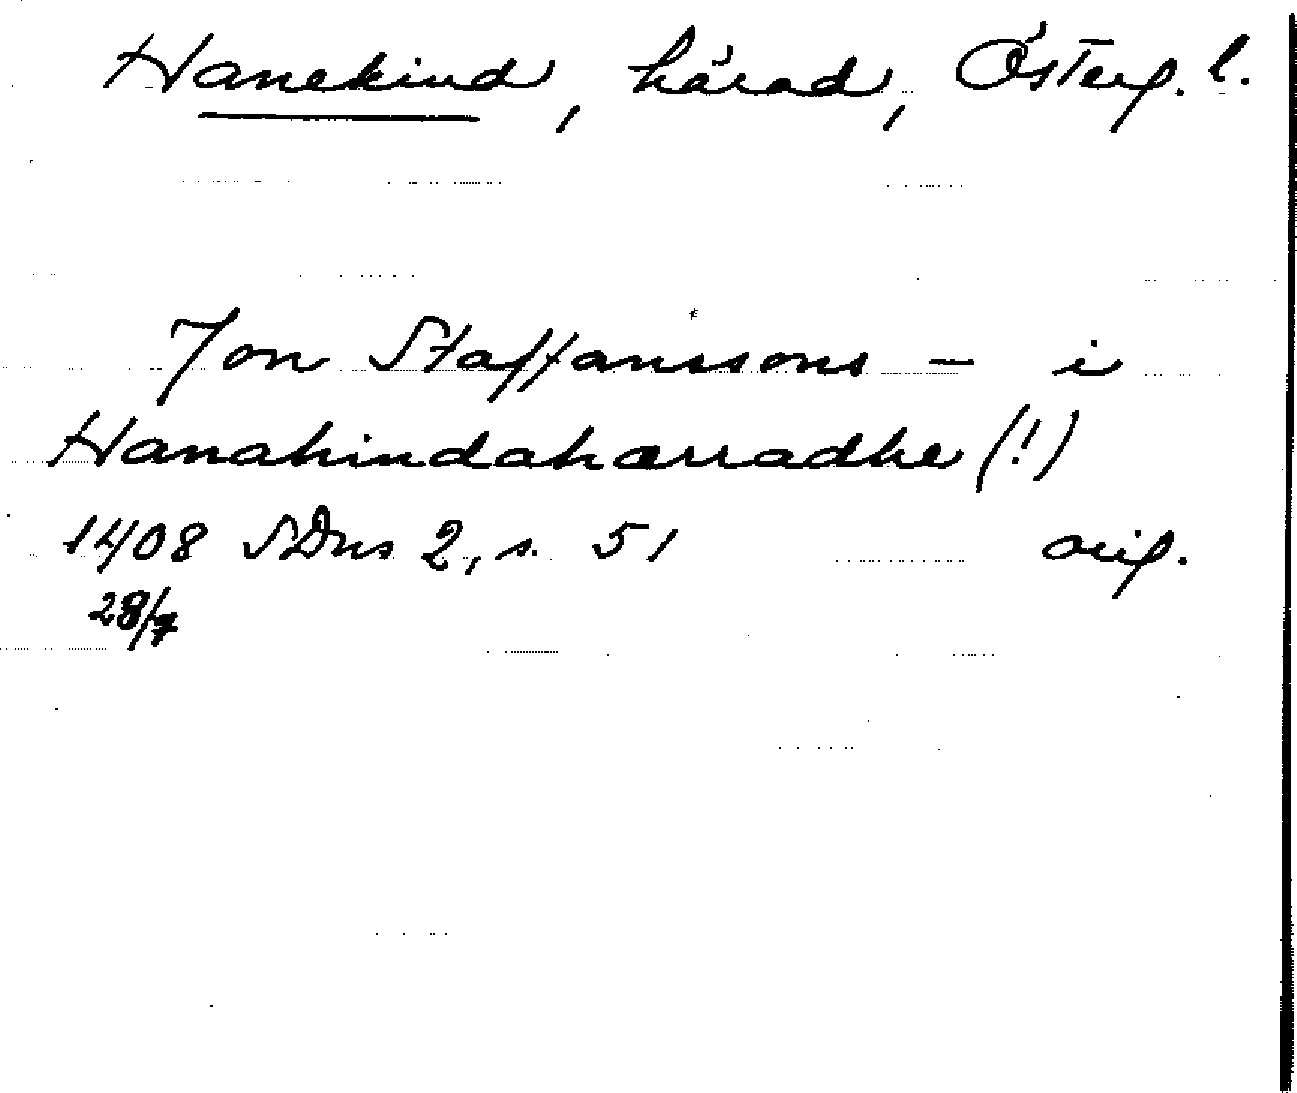 Hanekind, härad, Österg. l.
Jon Staffanssons - i
Hanahindahærradhe (!)
1408 SDns 2, s. 51 orig.
28/7